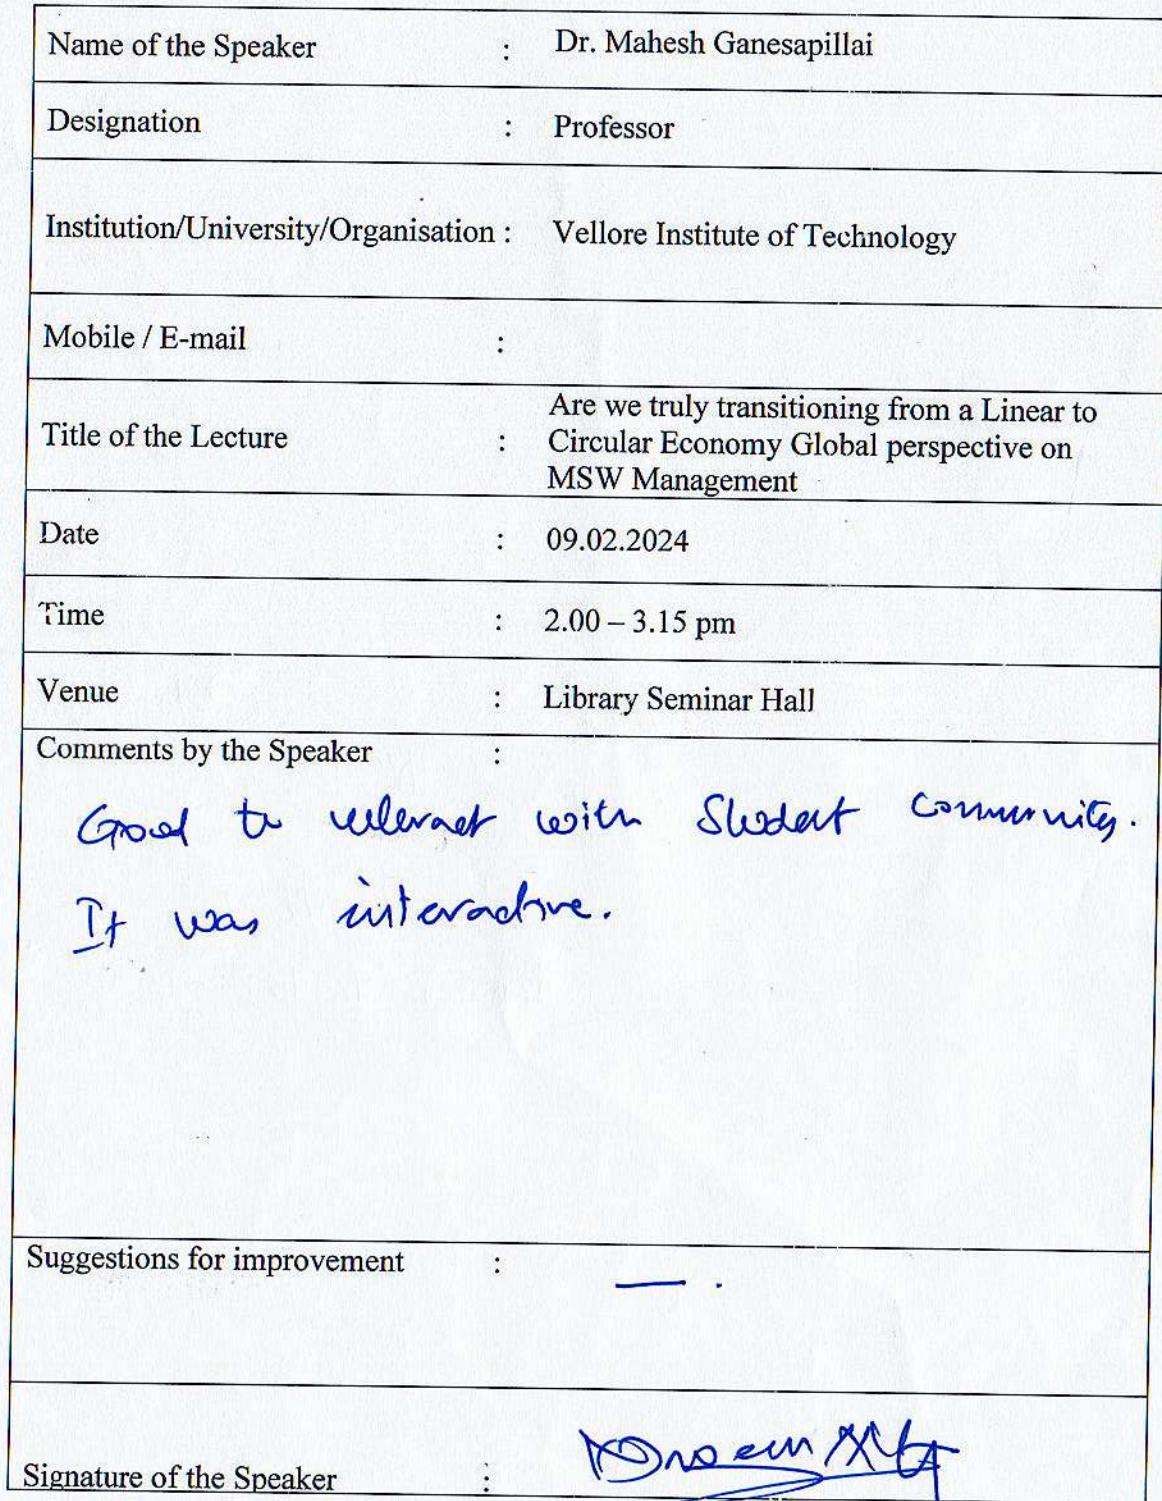 Name of the Speaker : Dr. Mahesh Ganesapillai
Designation : Professor
Institution/University/Organisation : Vellore Institute of Technology
Mobile / E-mail :
Title of the Lecture : Are we truly transitioning from a Linear to
Circular Economy Global perspective on
MSW Management
Date : 09.02.2024
Time : 2.00 – 3.15 pm
Venue : Library Seminar Hall
Comments by the Speaker :
Good to with Student Community.
It was interactive.
Suggestions for improvement : — .
Signature of the Speaker :